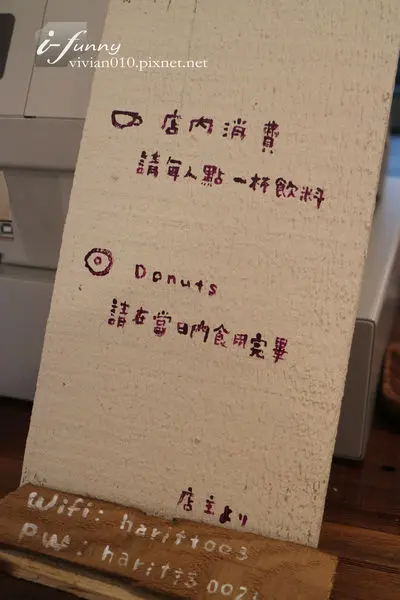 i-funny
vivian010.pixnet.net
店內消費
請每人點一杯飲料
Donuts
請在當日內食用完畢
店主より
Wifi: haritts003
PW: